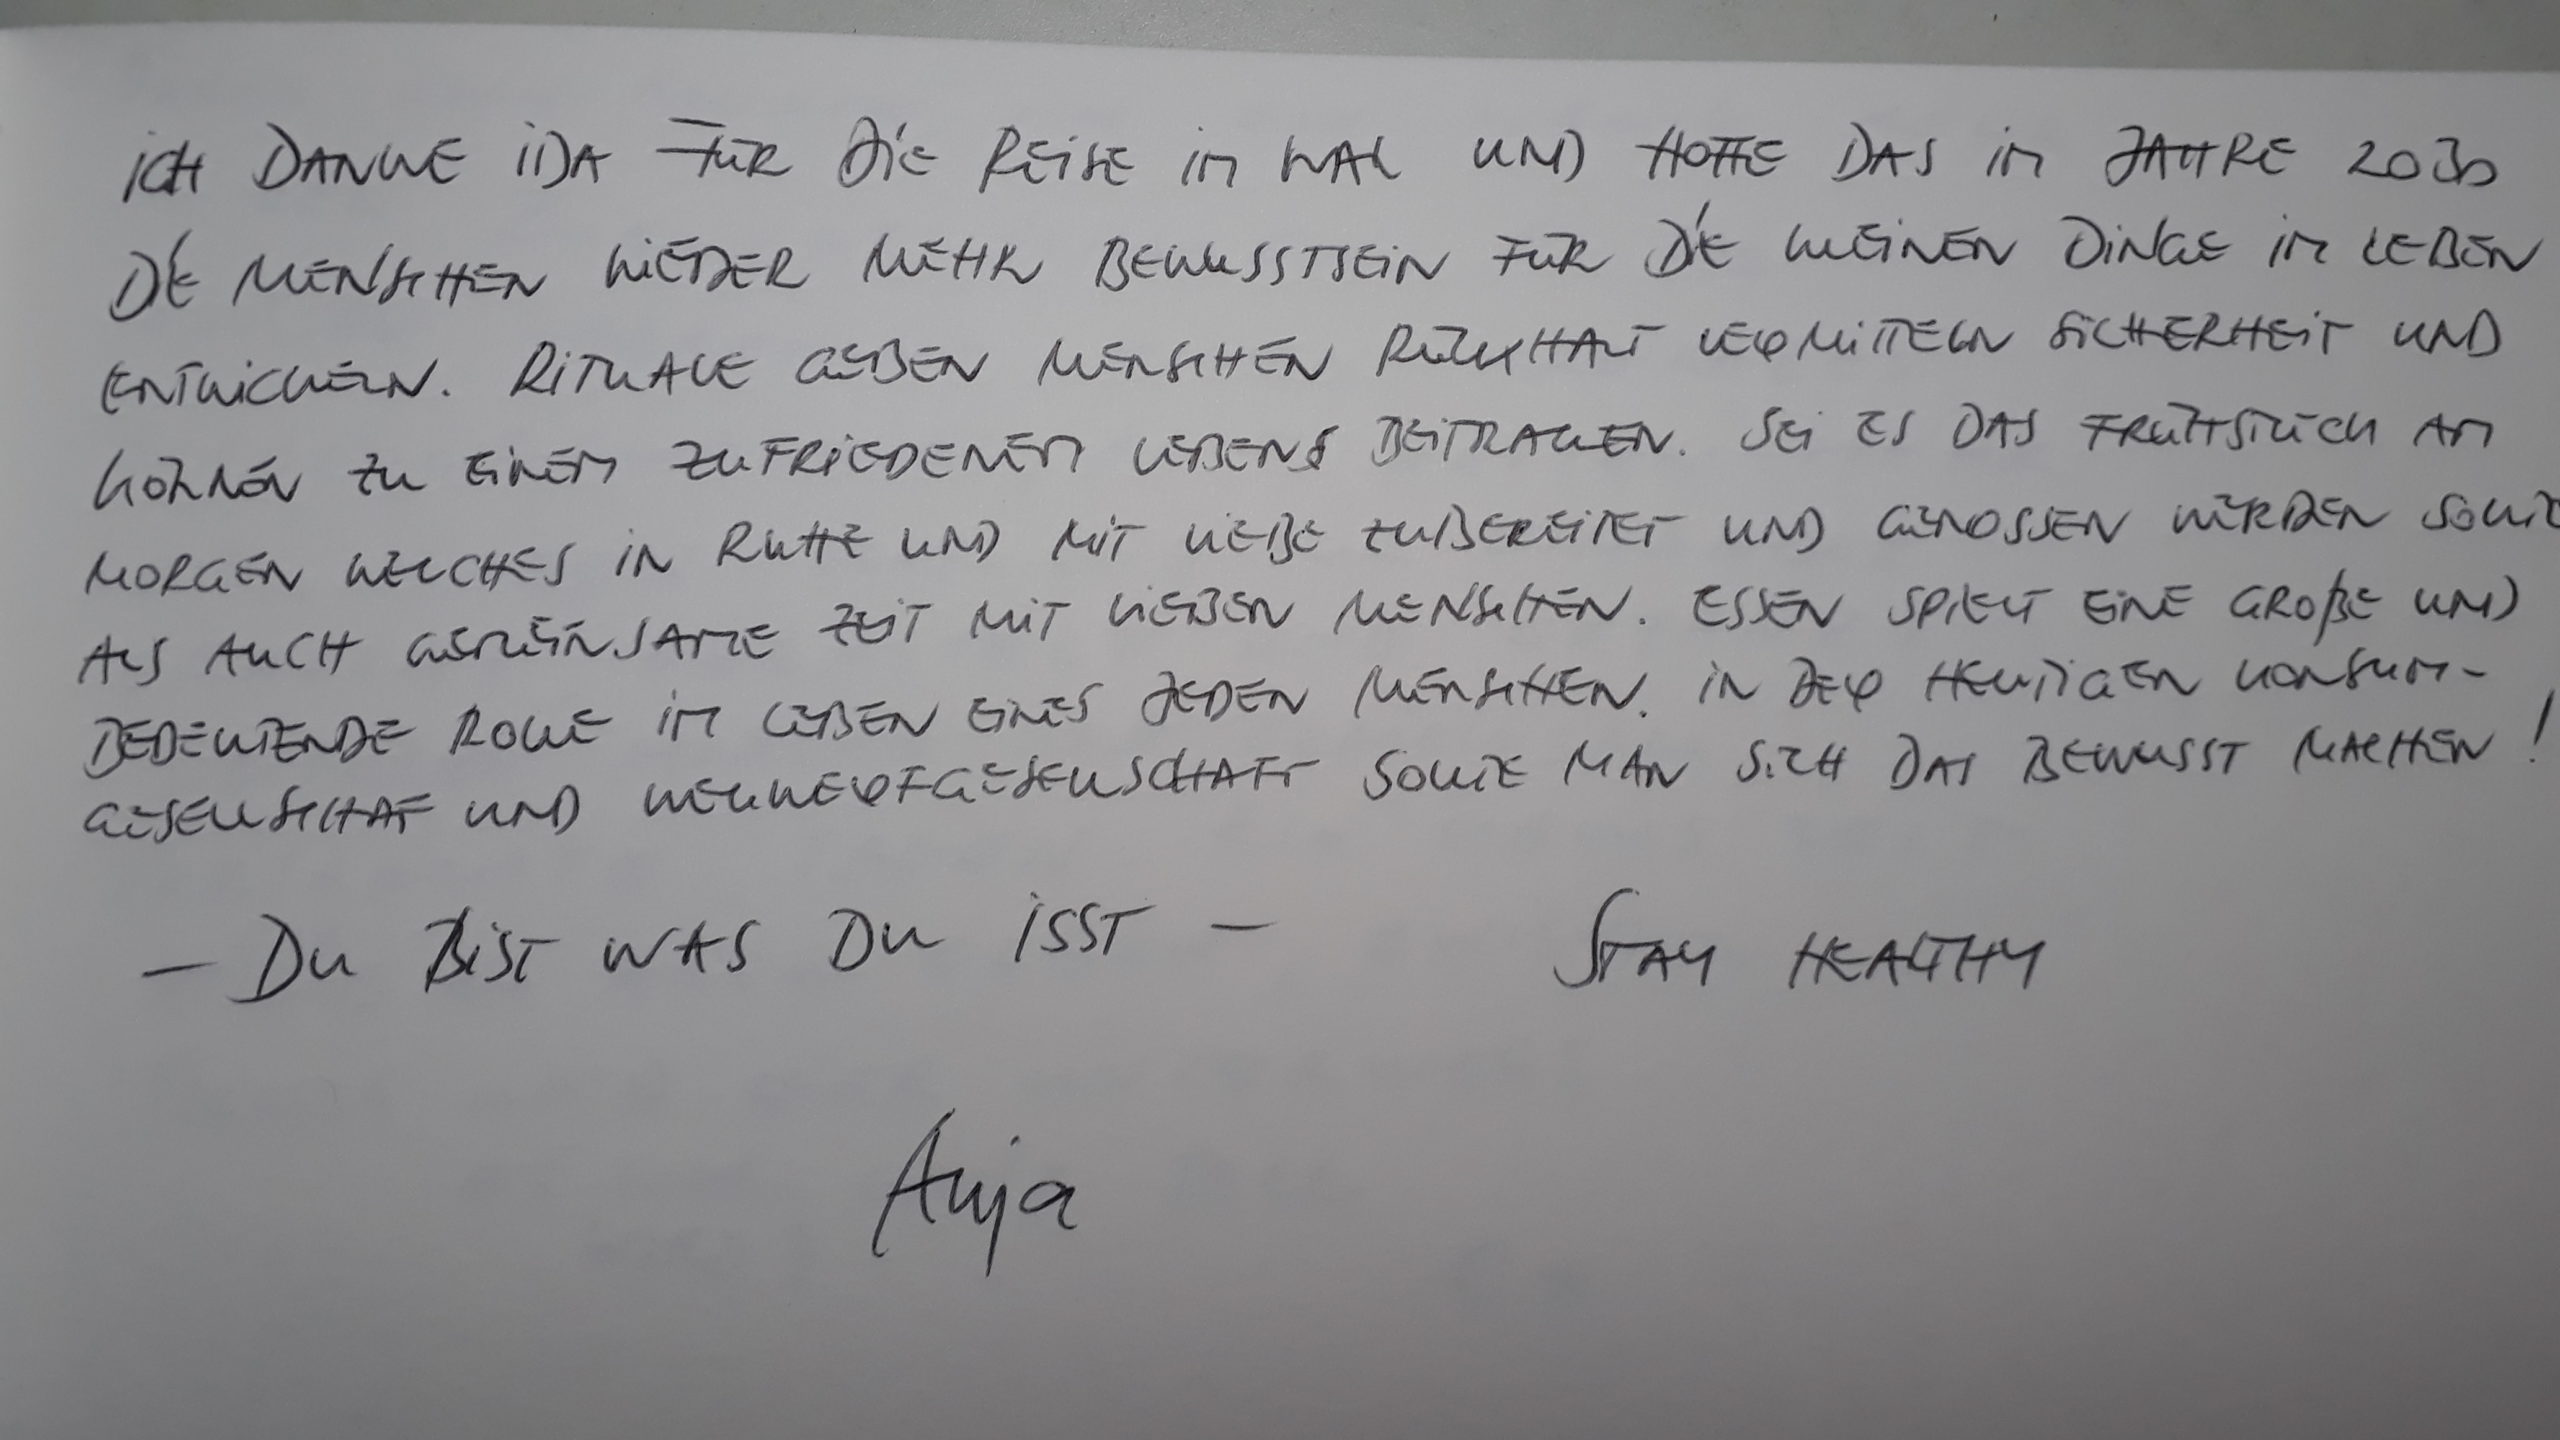 ICH DANKE IIDA FÜR DIE REISE IM WAL UND HOFFE DAS IM JAHRE 2030
DIE MENSCHEN WIEDER MEHR BEWUSSTSEIN FÜR DIE KLEINEN DINGE IM LEBEN
ENTWICKELN. RITUALE GEBEN MENSCHEN RÜCKHALT VERMITTELN SICHERHEIT UND
KÖNNEN ZU EINEM ZUFRIEDENEM LEBENS BEITRAGEN. SEI ES DAS FRÜHSTÜCK AM
MORGEN WELCHES IN RUHE UND MIT LIEBE ZUBEREITET UND GENOSSEN WERDEN SOLLTE
ALS AUCH GEMEINSAME ZEIT MIT LIEBEN MENSCHEN. ESSEN SPIELT EINE GROßE UND
BEDEUTENDE ROLLE IM LEBEN EINES JEDEN MENSCHEN. IN DER HEUTIGEN KONSUM-
GESELLSCHAF UND WEGWERFGESELLSCHAFT SOLLTE MAN SICH DAS BEWUSST MACHEN!
- DU BIST WAS DU ISST - STAY HEALTHY
Anja